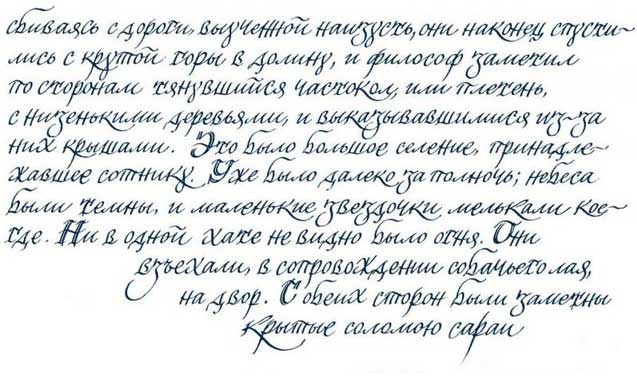 сбиваясь с дороги, выученной наизусть, они наконец спусти-
лись с крутой горы в долину, и философ заметил
по сторонам тянувшийся частокол, или плетень,
с низенькими деревьями, и выказывавшимися из-за
них крышами. Это было большое селение, принадле-
жавшее сотнику. Уже было далеко за полночь; небеса
были темны, и маленькие звездочки мелькали кое-
где. Ни в одной хате не видно было огня. Они
взъехали, в сопровождении собачьего лая,
на двор. С обеих сторон были заметны
крытые соломою сараи